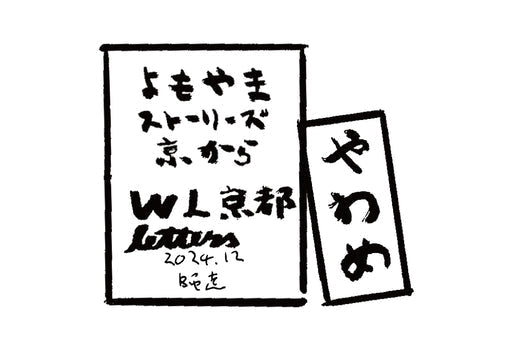 よもやま
ストーリーズ
京から
WL京都
letters
2024.12
やわめ